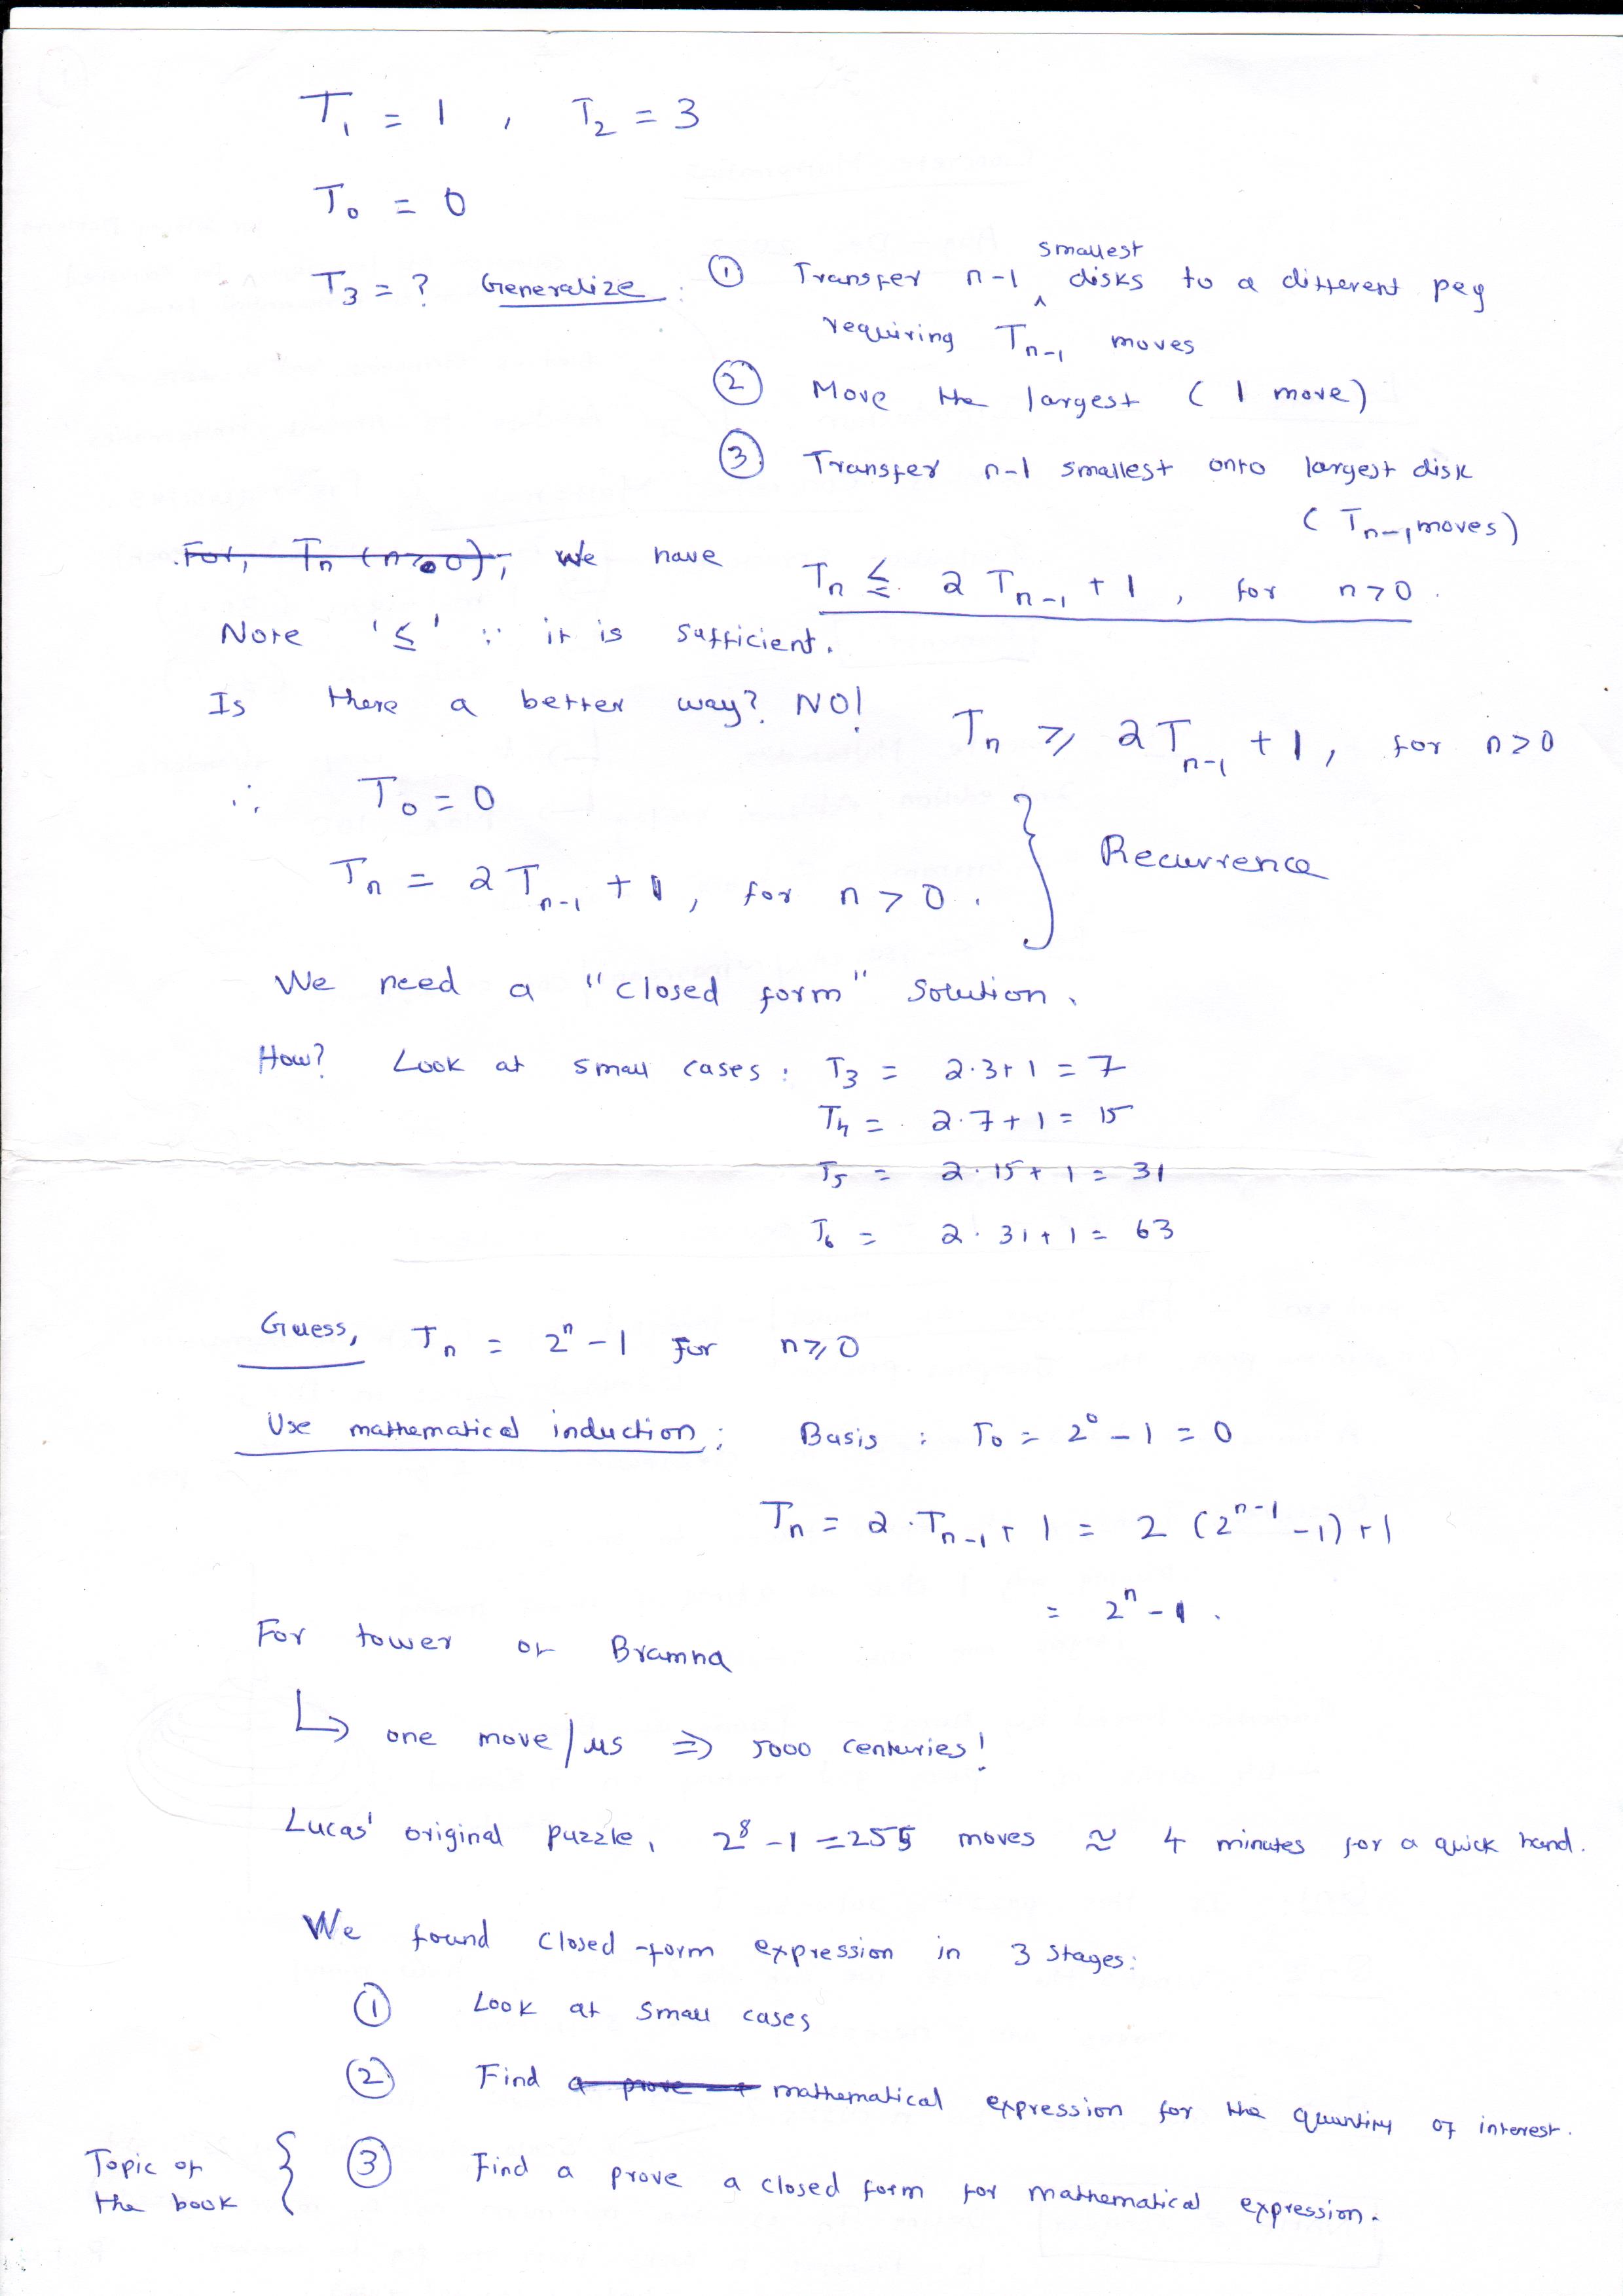 T₁ = 1 , T₂ = 3
T₀ = 0
T₃ = ? Generalize : ① Transfer n-1 smallest disks to a different peg
requiring Tₙ₋₁ moves
② Move the largest ( 1 move )
③ Transfer n-1 smallest onto largest disk
( Tₙ₋₁ moves )
For, Tₙ (n≥0), we have Tₙ ≤ 2 Tₙ₋₁ + 1 , for n>0 .
Note '≤' ∵ it is sufficient.
Is there a better way? NO! Tₙ ≥ 2Tₙ₋₁ + 1, for n>0
∴ T₀ = 0
Tₙ = 2Tₙ₋₁ + 1, for n > 0 . } Recurrence
We need a "closed form" solution.
How? Look at small cases : T₃ = 2·3+1 = 7
T₄ = 2·7+1 = 15
T₅ = 2·15+1 = 31
T₆ = 2·31+1 = 63
Guess, Tₙ = 2ⁿ - 1 for n ≥ 0
Use mathematical induction : Basis : T₀ = 2⁰ - 1 = 0
Tₙ = 2·Tₙ₋₁ + 1 = 2 (2ⁿ⁻¹ - 1) + 1
= 2ⁿ - 1 .
For tower of Bramha
↳ one move/μs ⇒ 5000 centuries!
Lucas' original puzzle, 2⁸ - 1 = 255 moves ≈ 4 minutes for a quick hand.
We found closed-form expression in 3 stages:
① Look at small cases
② Find a prove a mathematical expression for the quantity of interest.
Topic of the book { ③ Find a prove a closed form for mathematical expression.